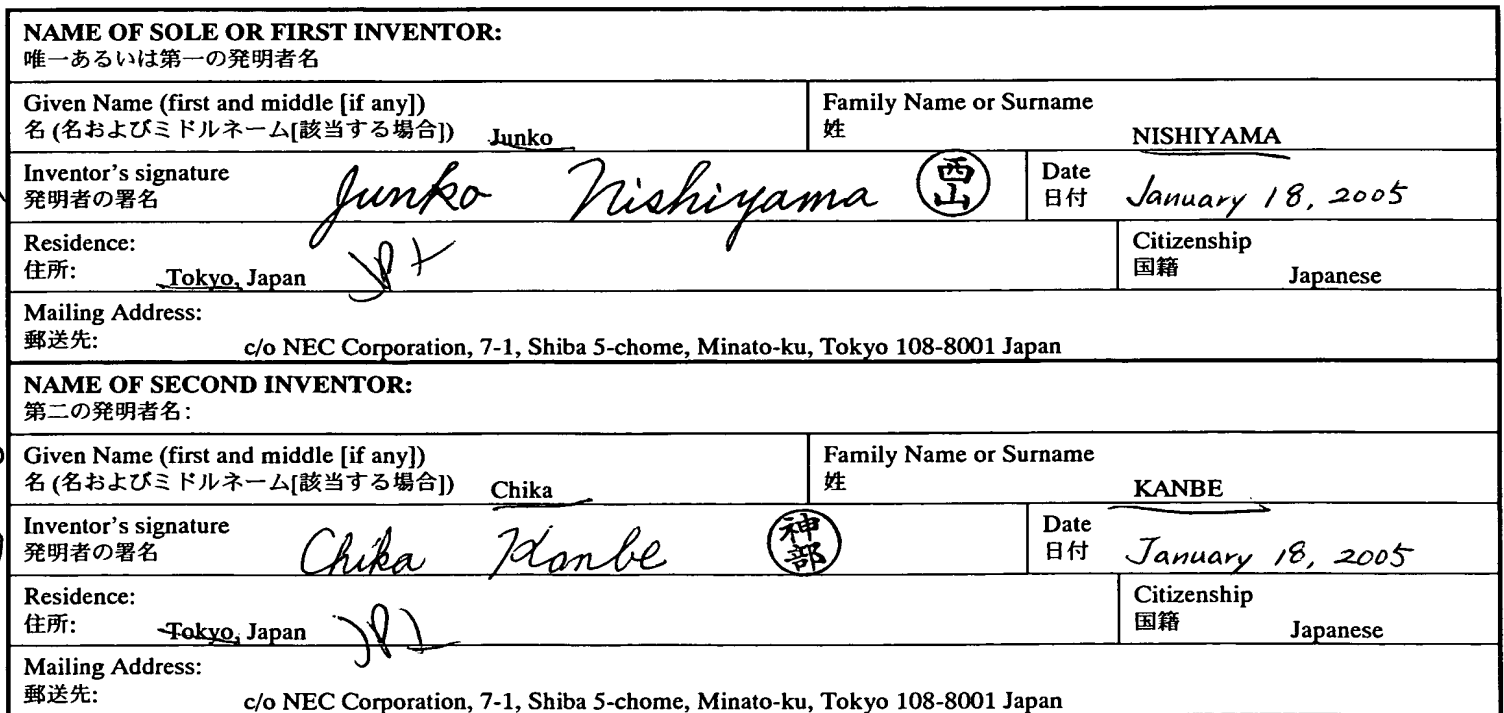 NAME OF SOLE OR FIRST INVENTOR:
唯一あるいは第一の発明者名
Given Name (first and middle [if any])
名 (名およびミドルネーム[該当する場合]) Junko
Family Name or Surname
姓 NISHIYAMA
Inventor's signature
発明者の署名 Junko Nishiyama 西山
Date
日付 January 18, 2005
Residence:
住所: Tokyo, Japan
Citizenship
国籍 Japanese
Mailing Address:
郵送先: c/o NEC Corporation, 7-1, Shiba 5-chome, Minato-ku, Tokyo 108-8001 Japan
NAME OF SECOND INVENTOR:
第二の発明者名:
Given Name (first and middle [if any])
名 (名およびミドルネーム[該当する場合]) Chika
Family Name or Surname
姓 KANBE
Inventor's signature
発明者の署名 Chika Kanbe 神部
Date
日付 January 18, 2005
Residence:
住所: Tokyo, Japan
Citizenship
国籍 Japanese
Mailing Address:
郵送先: c/o NEC Corporation, 7-1, Shiba 5-chome, Minato-ku, Tokyo 108-8001 Japan